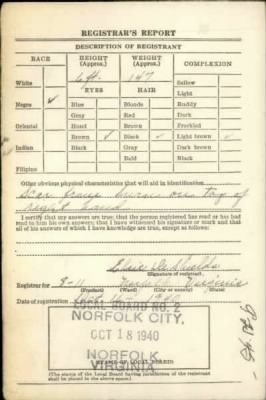 REGISTRAR'S REPORT
DESCRIPTION OF REGISTRANT
RACE
HEIGHT
(Approx.)
WEIGHT
(Approx.)
COMPLEXION
White
6 ft.
147
Sallow
Light
EYES
HAIR
Negro ✓
Blue
Blonde
Ruddy
Gray
Red
Dark
Oriental
Hazel
Brown
Freckled
Brown ✓
Black ✓
Light brown ✓
Indian
Black
Gray
Dark brown
Bald
Black
Filipino
Other obvious physical characteristics that will aid in identification
Scar from burn on top of
right hand
I certify that my answers are true; that the person registered has read or has had
read to him his own answers; that I have witnessed his signature or mark and that
all of his answers of which I have knowledge are true, except as follows:
(Signature of registrar)
Registrar for
(Ward)
(City or county)
(State)
Virginia
Date of registration
LOCAL BOARD NO. 2
NORFOLK CITY,
OCT 18 1940
NORFOLK
VIRGINIA
(The stamp of the Local Board having jurisdiction of the registrant
shall be placed in the above space.)